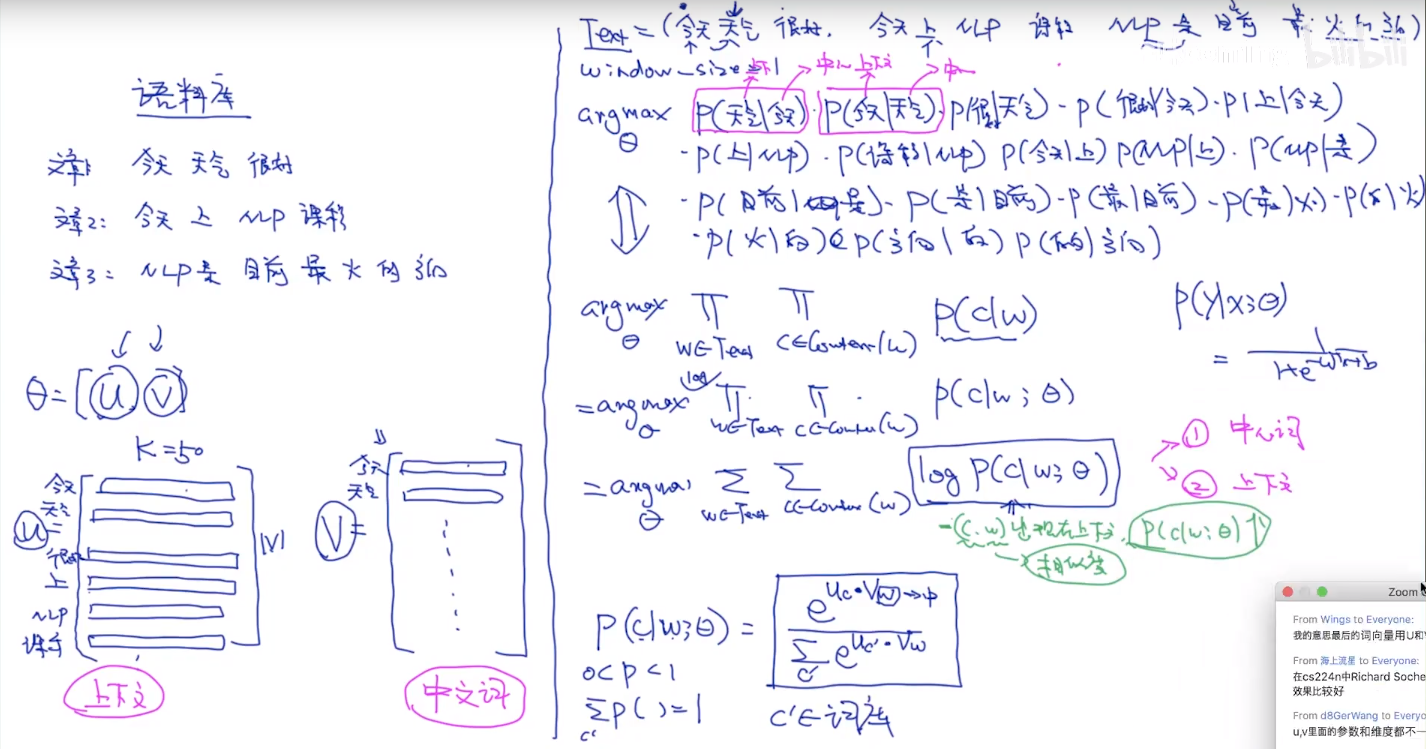 语料库
文章1: 今天 天气 很好
文章2: 今天 上 NLP 课程
文章3: NLP 是 目前 最 火 的 方向
θ=[U V]
K=50
今天
天气
很好
上
NLP
课程
U=
|V|
上下文
今天
天气
V=
中文词
Text=(今天 天气 很好, 今天 上 NLP 课程 NLP 是 目前 最 火 的 方向)
bilibili
window_size=1
上下 中心 上下文 中心
argmax θ P(天气|今天)·P(今天|天气)·P(很好|天气)·P(很好|今天)·P(上|今天)
·P(上|NLP)·P(课程|NLP) P(今天|上) P(NLP|上)·P(NLP|是)
·P(目前|是)·P(是|目前)·P(最|目前)·P(最|火)·P(的|火)
·P(火|的) P(方向|的) P(的|方向)
argmax θ ∏ w∈Text ∏ c∈Context(w) P(c|w)
P(y|x;θ)
= 1/(1+e^-(w^T x+b))
log
=argmax θ ∏ w∈Text ∏ c∈Context(w) P(c|w;θ)
=argmax θ Σ w∈Text Σ c∈Context(w) log P(c|w;θ)
① 中心词
② 上下文
-(c,w)出现在上下文, P(c|w;θ)↑
→相似度
P(c|w;θ) = e^(Uc·Vw) / Σc' e^(Uc'·Vw)
→中
0<P<1
Σc' P( )=1
c'∈词库
Zoom
From Wings to Everyone:
我的意思最后的词向量用U和
From 海上流星 to Everyone:
在cs224n中Richard Soche
效果比较好
From d8GerWang to Everyo
u,v里面的参数和维度都不一